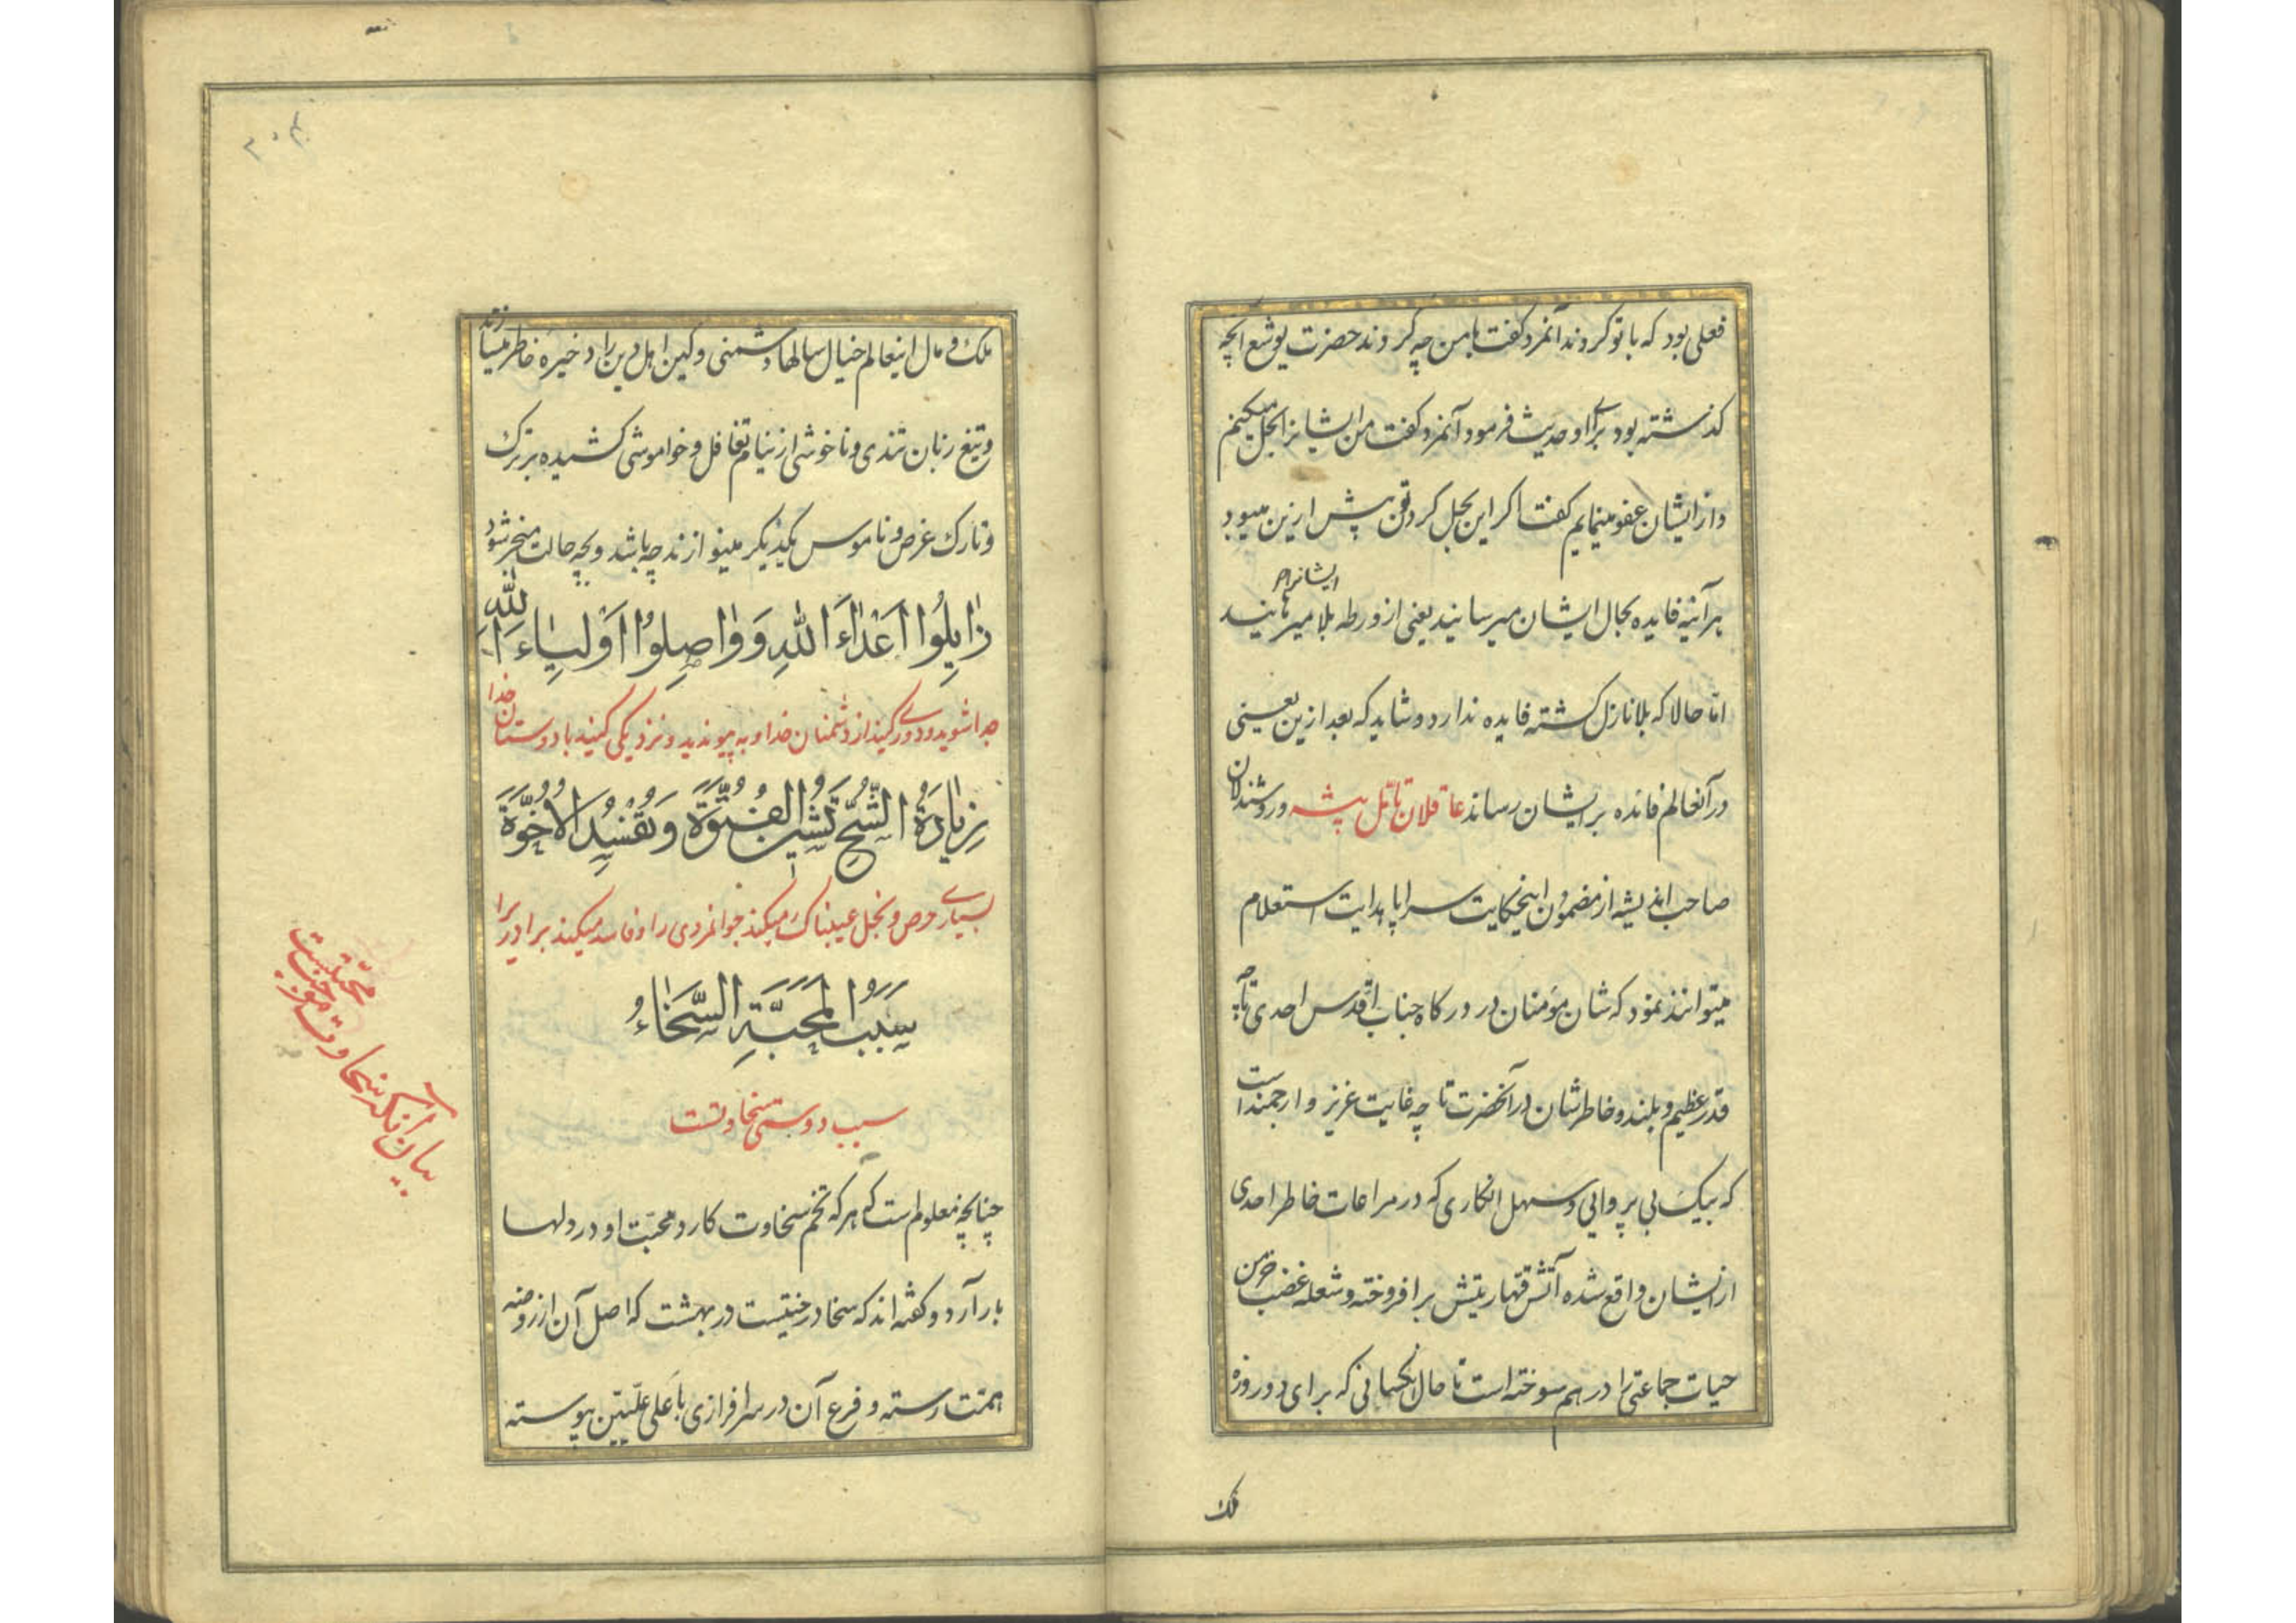 فعلی بود که با تو کردند آنمرد کفت با من چه کردند حضرت یوشع آنچه
کذشته بود برای او حدیث فرمود آنمرد کفت من ایشانرا بحل میکنم
و از ایشان عفو مینمایم کفت اکر این بحل کردن پیش ازین میبود
هر آینه فایده بحال ایشان میرسانید یعنی از ورطه بلا میرهانید
امّا حالا که بلا نازل کشته فایده ندارد و شاید که بعد ازین یعنی
در آنعالم فائده بر ایشان رساند عاقلان تامّل پیشه و روشندلان
صاحب اندیشه از مضمون اینحکایت سراپا هدایت استعلام
میتوانند نمود که شان مؤمنان در درکاه جناب اقدس احدی تا چه
قدر عظیم و بلند و خاطرشان در آنحضرت تا چه غایت عزیز و ارجمند است
که بیک بی پروایی و سهل انکاری که در مراعات خاطر احدی
از ایشان واقع شده آتش قهاریتش برافروخته و شعله غضب خرمن
حیات جماعتی را در هم سوخته است تا حال آنکسانی که برای دو روزه
ملک
ملک و مال اینعالم خیال سالها دشمنی و کین اهل دین را ذخیره خاطر میسازند
و تیغ زبان تندی و ناخوشی از نیام تغافل و خواموشی کشیده بر ترک
و تارک عرض و ناموس یکدیکر مینوازند چه باشد و بچه حالت منجر شود
زٰایِلُوا اَعْدٰاءَ اللّٰهِ وَ وٰاصِلُوا اَوْلِیٰاءَ اللّٰهِ
جدا شوید و دوری کنید از دشمنان خدا و به پیوندید و نزدیکی کنید با دوستان خدا
زِیٰادَةُ الشُّحِّ تَشِینُ الفُتُوَّةَ وَ تُفْسِدُ الاُخُوَّةَ
بسیاری حرص و بخل عیبناک میکند جوانمردی را و فاسد میکند برادری را
سَبَبُ المَحَبَّةِ السَّخٰاءُ
سبب دوستی سخاوتست
چنانچه معلوم است که هر که تخم سخاوت کارد محبّت او در دلها
بار آرد و کفته اند که سخا درختیست در بهشت که اصل آن از روضه
همّت رسته و فرع آن در سرافرازی با علی علّیین پیوسته
بیان آنکه سخاوت موجب محبّتست